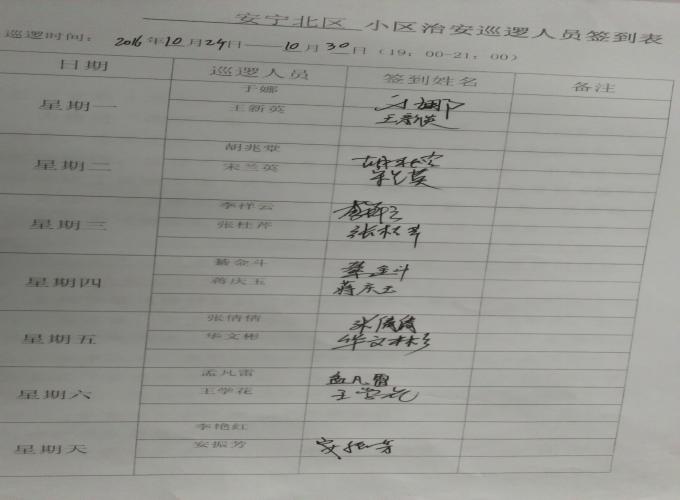 安宁北区 小区治安巡逻人员签到表
巡逻时间: 2016年10月24日——10月30日(19:00-21:00)
日期 巡逻人员 签到姓名 备注
星期一 于娜 于娜
王新英 王新英
星期二 胡兆
宋兰英 宋兰英
星期三 李祥云 李祥云
张桂芹 张桂芹
星期四 綦金斗 綦金斗
蒋庆玉 蒋庆玉
星期五 张倩倩 张倩倩
华文彬 华文彬
星期六 孟凡雷 孟凡雷
王学花 王学花
星期天 李艳红
安振芳 安振芳